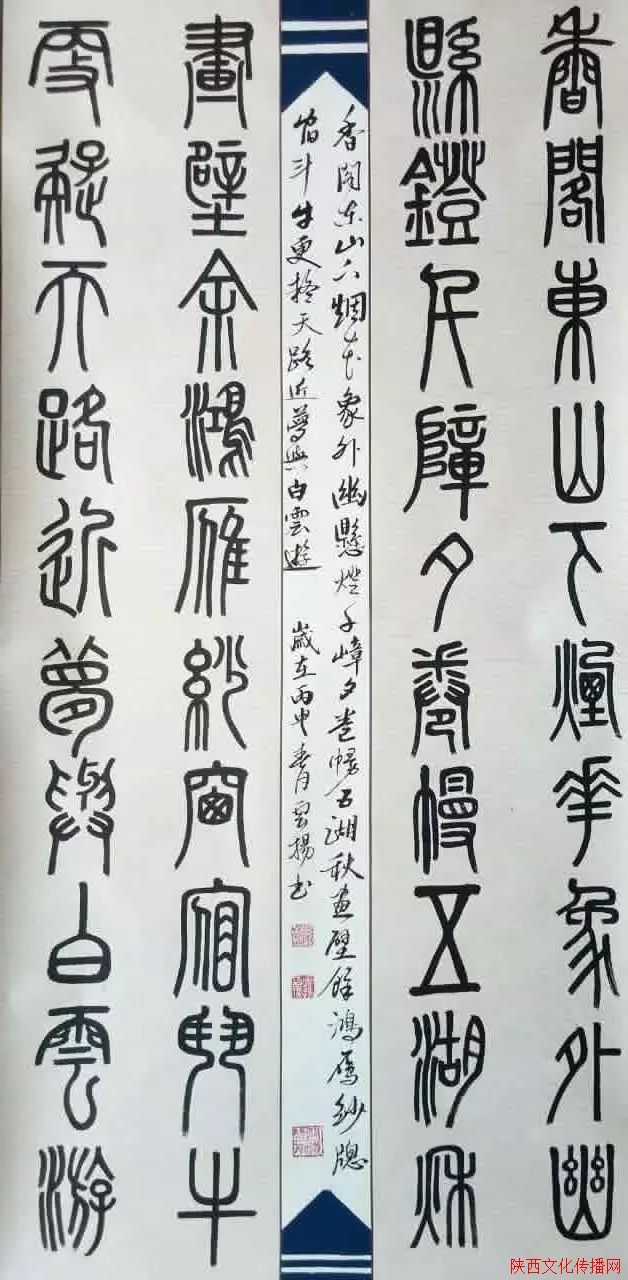 香閣東山下煙華象外幽
縣鐙千障夕卷幔五湖秋
香閣東山下烟花象外幽懸燈千嶂夕卷幔五湖秋畫壁餘鴻雁紗牕
宿斗牛更疑天路近夢與白雲遊 歲在丙申春月雲揚書
畫壁余鴻雁紗窗宿斗牛
更疑天路近夢與白雲游
陕西文化传播网